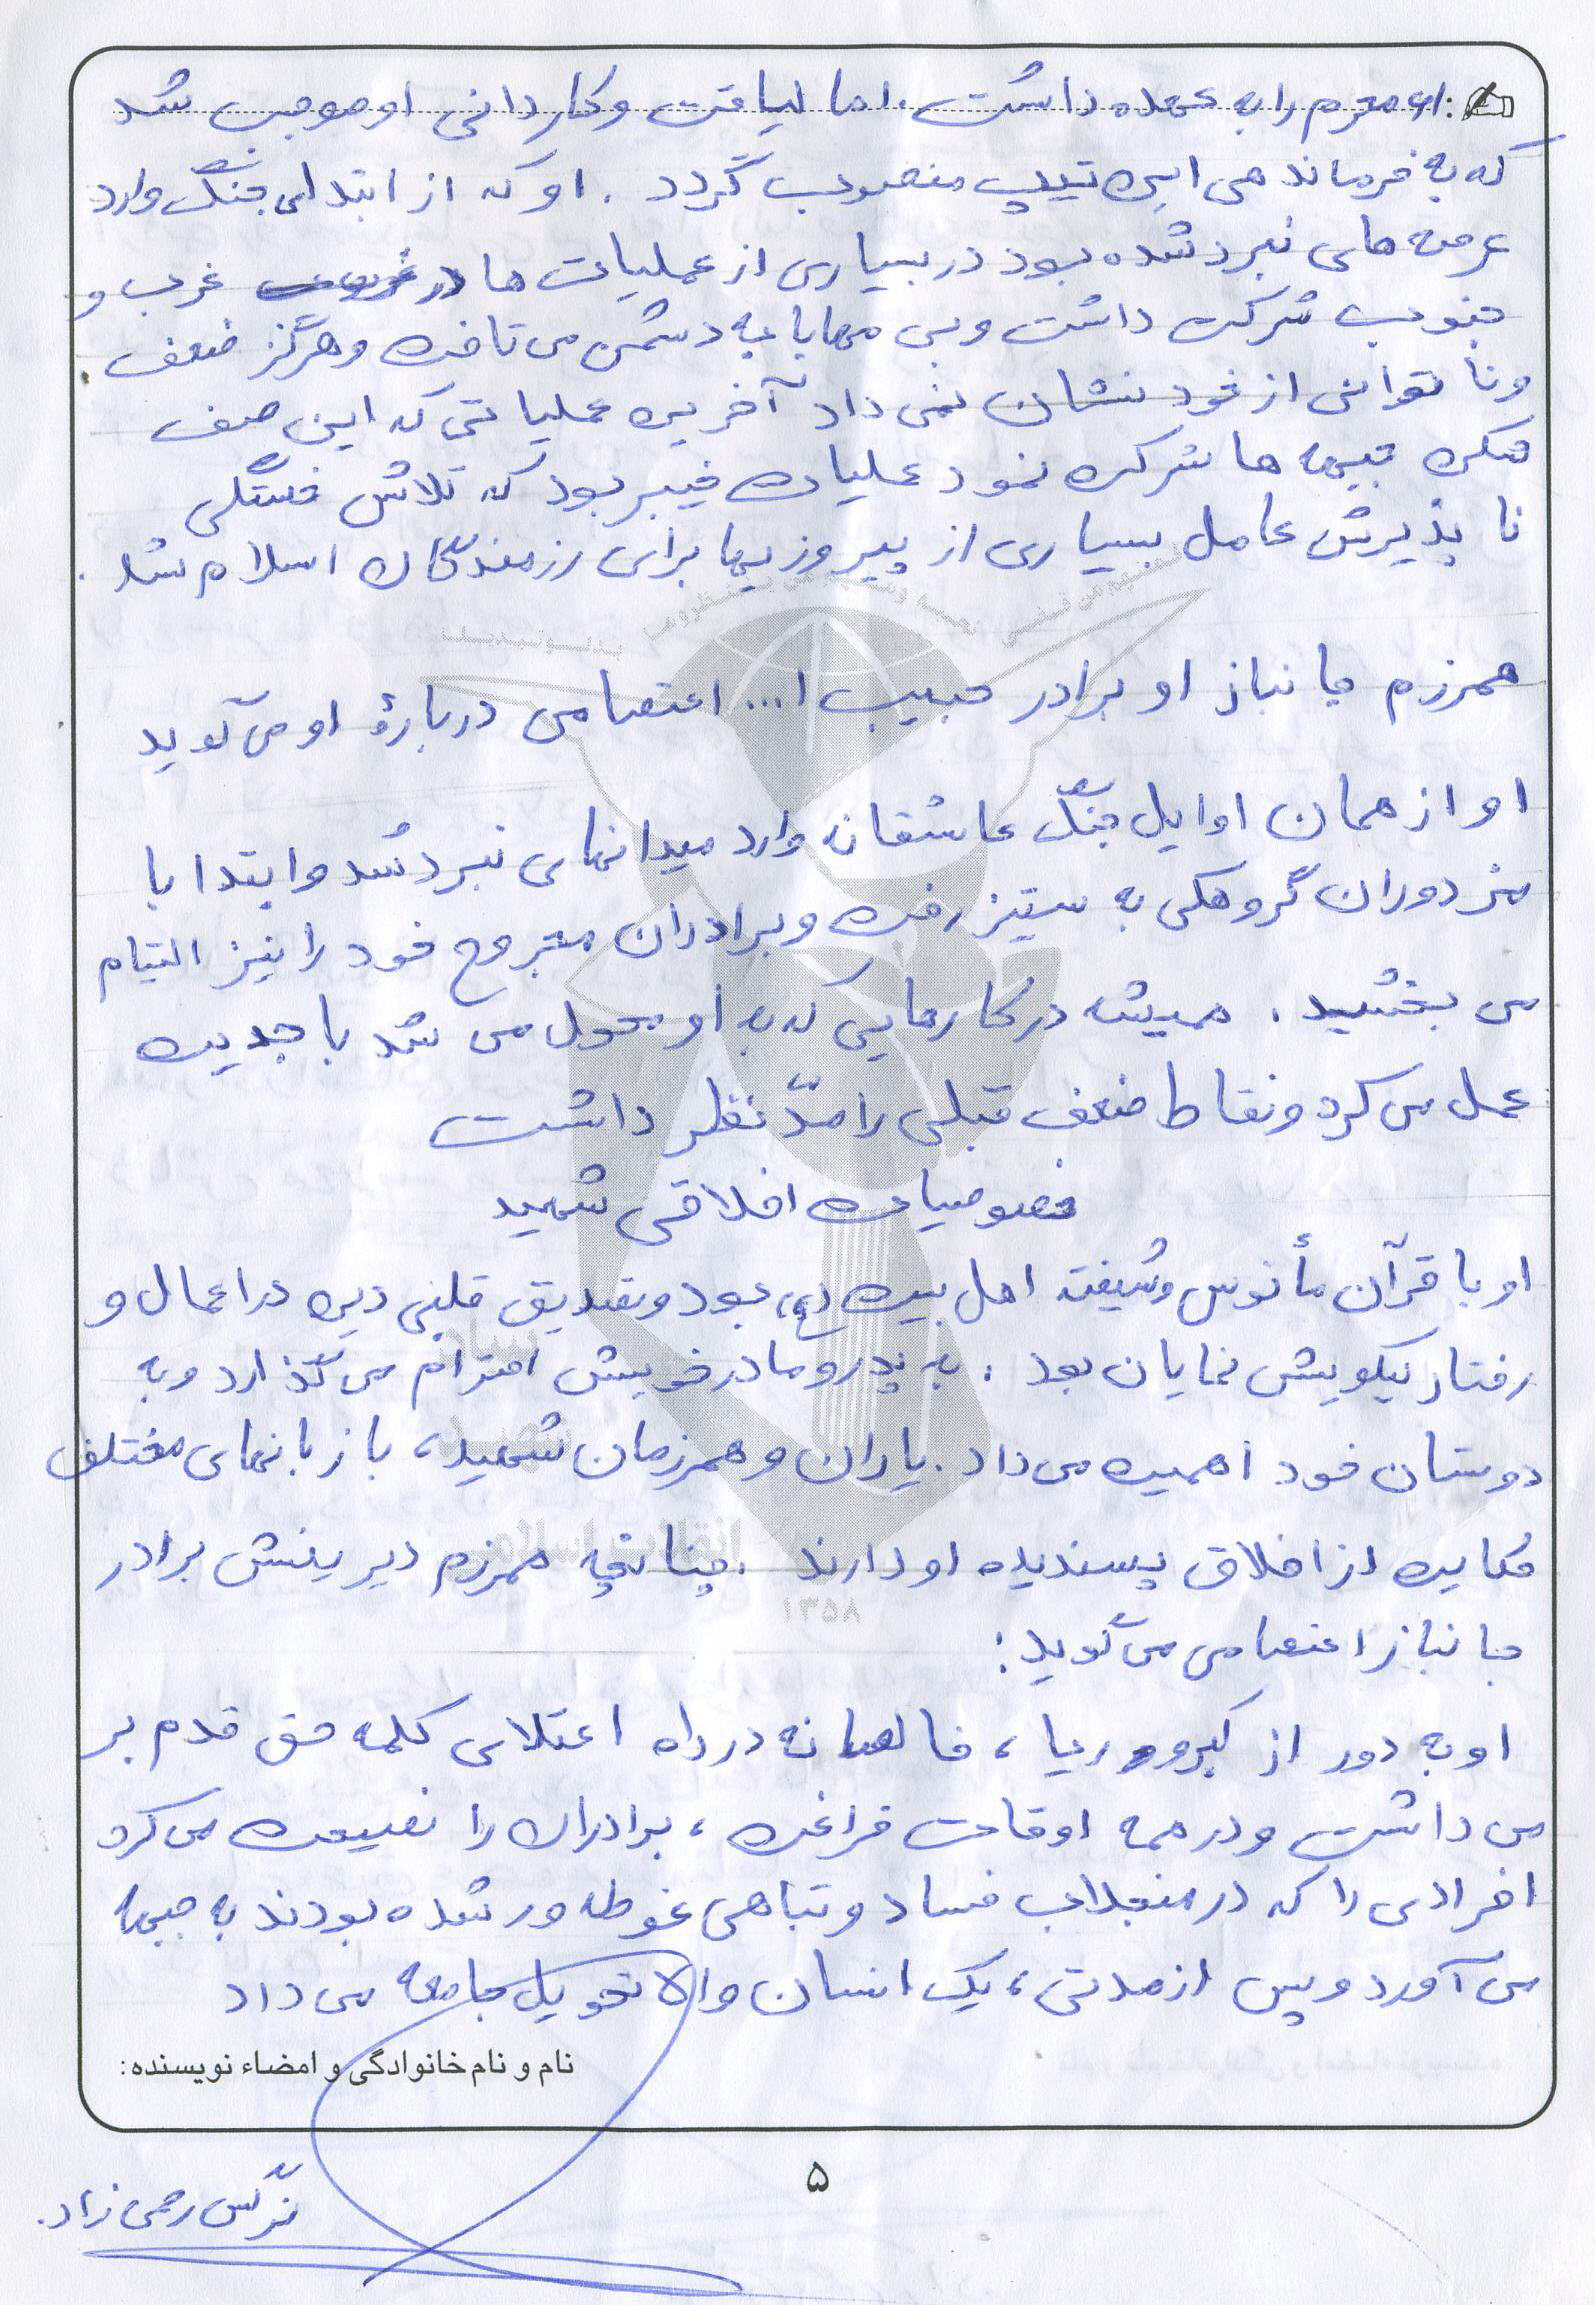 محرم را به عهده داشت. اما لیاقت و کاردانی او موجب شد
که به فرماندهی این تیپ منصوب گردد . او که از ابتدای جنگ وارد
عرصه های نبرد شده بود در بسیاری از عملیات ها در غرب و
جنوب شرکت داشت و بی مهابا به دشمن می تاخت و هرگز ضعف
و ناتوانی از خود نشان نمی داد آخرین عملیاتی که این صف
شکن جبهه ها شرکت نمود عملیات خیبر بود که تلاش خستگی
ناپذیرش عامل بسیاری از پیروزیها برای رزمندگان اسلام شد .
همرزم جانباز او برادر حبیب ا... اعتصامی دربارهٔ او می گوید
او از همان اوایل جنگ عاشقانه وارد میدانهای نبرد شد و ابتدا با
مزدوران گروهکی به ستیز رفت و برادران مجروح خود را نیز التیام
می بخشید . همیشه در کارهایی که به او محول می شد با جدیت
عمل می کرد و نقاط ضعف قبلی را مدّ نظر داشت
خصوصیات اخلاقی شهید
او با قرآن مأنوس و شیفته اهل بیت (ع) بود و تصدیق قلبی دین در اعمال و
رفتار نیکویش نمایان بود . به پدر و مادر خویش احترام می گذارد و به
دوستان خود اهمیت می داد . یاران و همرزمان شهید، با زبانهای مختلف
حکایت از اخلاق پسندیده او دارند . چنانچه همرزم دیرینش برادر
جانباز اعتصامی می گوید :
او به دور از کبر و ریا ، خالصانه در راه اعتلای کلمه حق قدم بر
می داشت و در همه اوقات فراغت ، برادران را نصیحت می کرد
افرادی را که در منجلاب فساد و تباهی غوطه ور شده بودند به جبهه
می آورد و پس از مدتی ، یک انسان والا تحویل جامعه می داد
نام و نام خانوادگی و امضاء نویسنده:
۵
نرگس رحمی زاد.
انقلاب اسلامی
۱۳۵۸